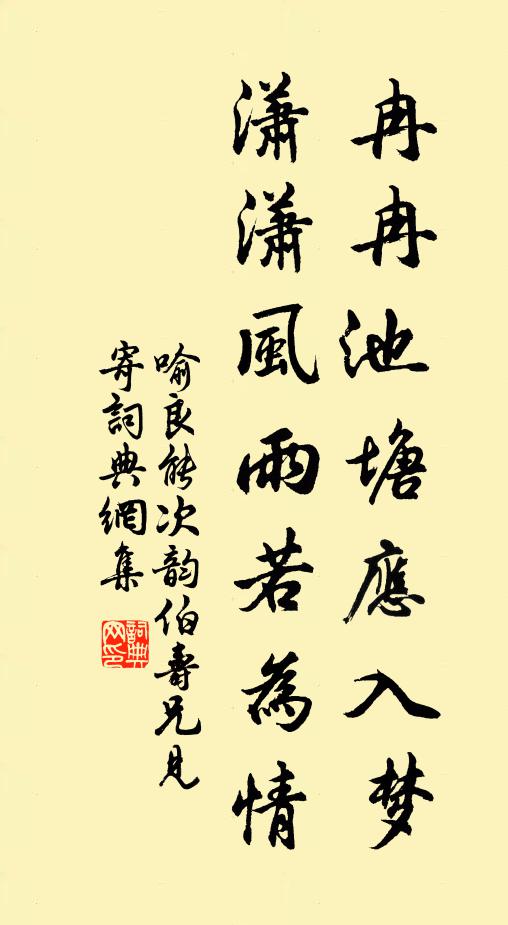 冉冉池塘應入梦
瀟瀟風雨若為情
喻良能次韵伯壽兄見
寄詞典網集
詞典
网印